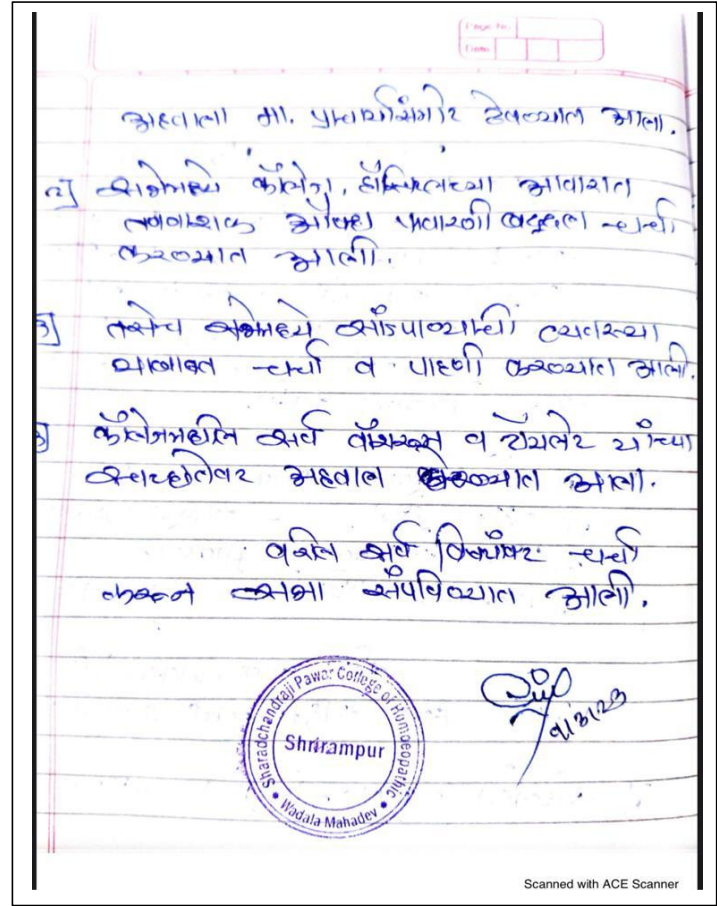 Page No.
Date
अहवाला मा. प्राचार्यांसमोर ठेवण्यात आला.
२] सभेमध्ये कॉलेज, हॉस्पिटलच्या आवारात
तणनाशक औषध फवारणी बद्दल चर्चा
करण्यात आली.
३] तसेच सभेमध्ये सांडपाण्याची व्यवस्था
याबाबत चर्चा व पाहणी करण्यात आली.
कॉलेजमधील सर्व वॉशरूम व टॉयलेट यांच्या
स्वच्छतेवर अहवाल देण्यात आला.
वरील सर्व विषयांवर चर्चा
करून सभा संपविण्यात आली.
Sharadchandraji Pawar College of Humoeopathic
Shrirampur
Wadala Mahadev
९/३/२३
Scanned with ACE Scanner